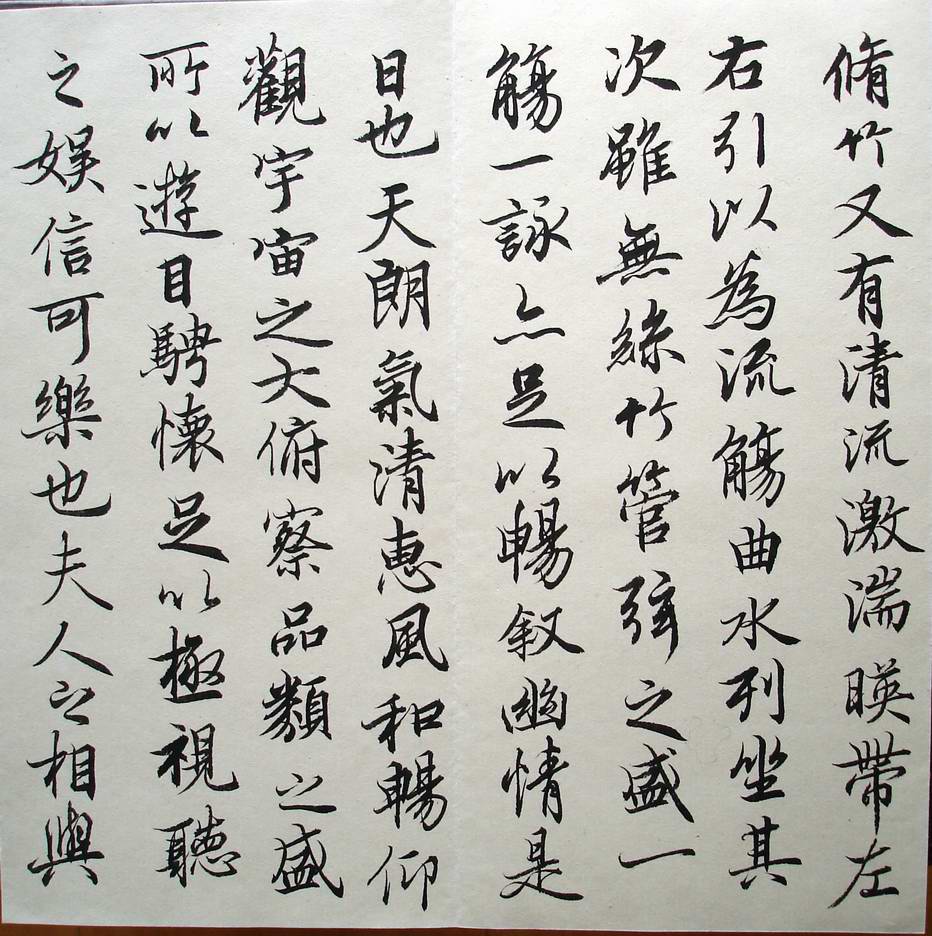 脩竹又有清流激湍暎帶左
右引以為流觴曲水列坐其
次雖無絲竹管弦之盛一
觴一詠亦足以暢叙幽情是
日也天朗氣清惠風和暢仰
觀宇宙之大俯察品類之盛
所以遊目騁懷足以極視聽
之娛信可樂也夫人之相與